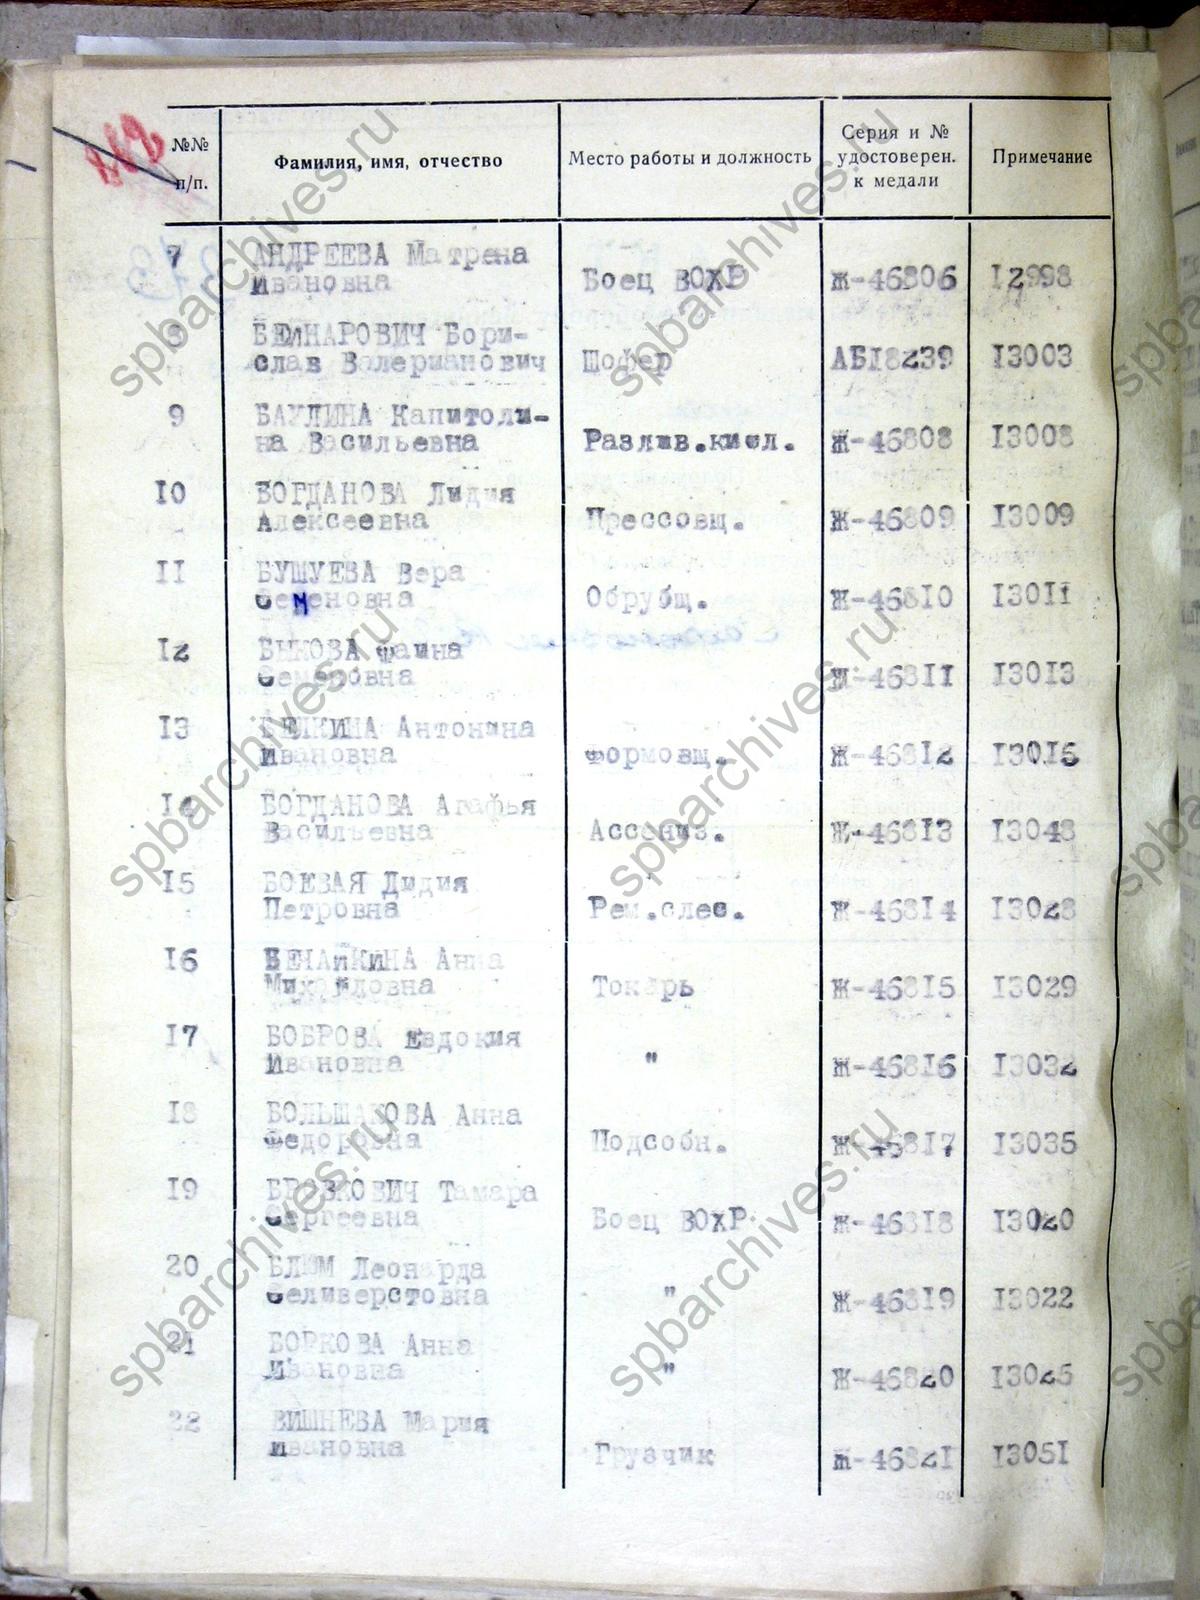 №№ п/п. Фамилия, имя, отчество Место работы и должность Серия и № удостоверен. к медали Примечание
7 АНДРЕЕВА Матрена
Ивановна Боец ВОХР Ж-46806 12998
8 БЕЙНАРОВИЧ Бори-
слав Валерианович Шофер АБ18239 13003
9 БАУЛИНА Капитоли-
на Васильевна Разлив.кисл. Ж-46808 13008
10 БОГДАНОВА Лидия
Алексеевна Прессовщ. Ж-46809 13009
11 БУШУЕВА Вера
Семеновна Обрубщ. Ж-46810 13011
12 БЫКОВА Фаина
Ж-46811 13013
13 БЕЛКИНА Антонина
Ивановна Формовщ. Ж-46812 13015
14 БОГДАНОВА Агафья
Васильевна Ассениз. Ж-46813 13048
15 БОЕВАЯ Лидия
Петровна Рем.слес. Ж-46814 13028
16 БЕЧАЙКИНА Анна
Михайловна Токарь Ж-46815 13029
17 БОБРОВА Евдокия
Ивановна " Ж-46816 13032
18 БОЛЬШАКОВА Анна
Федоровна Подсобн. Ж-46817 13035
19 БРАЗКОВИЧ Тамара
Сергеевна Боец ВОХР Ж-46818 13020
20 БЛЮМ Леонарда
Селиверстовна " Ж-46819 13022
21 БОРКОВА Анна
Ивановна " Ж-46820 13025
22 ВИШНЕВА Мария
Ивановна Грузчик Ж-46821 13051
spbarchives.ru
spbarchives.ru
spbarchives.ru
spbarchives.ru
spbarchives.ru
spbarchives.ru